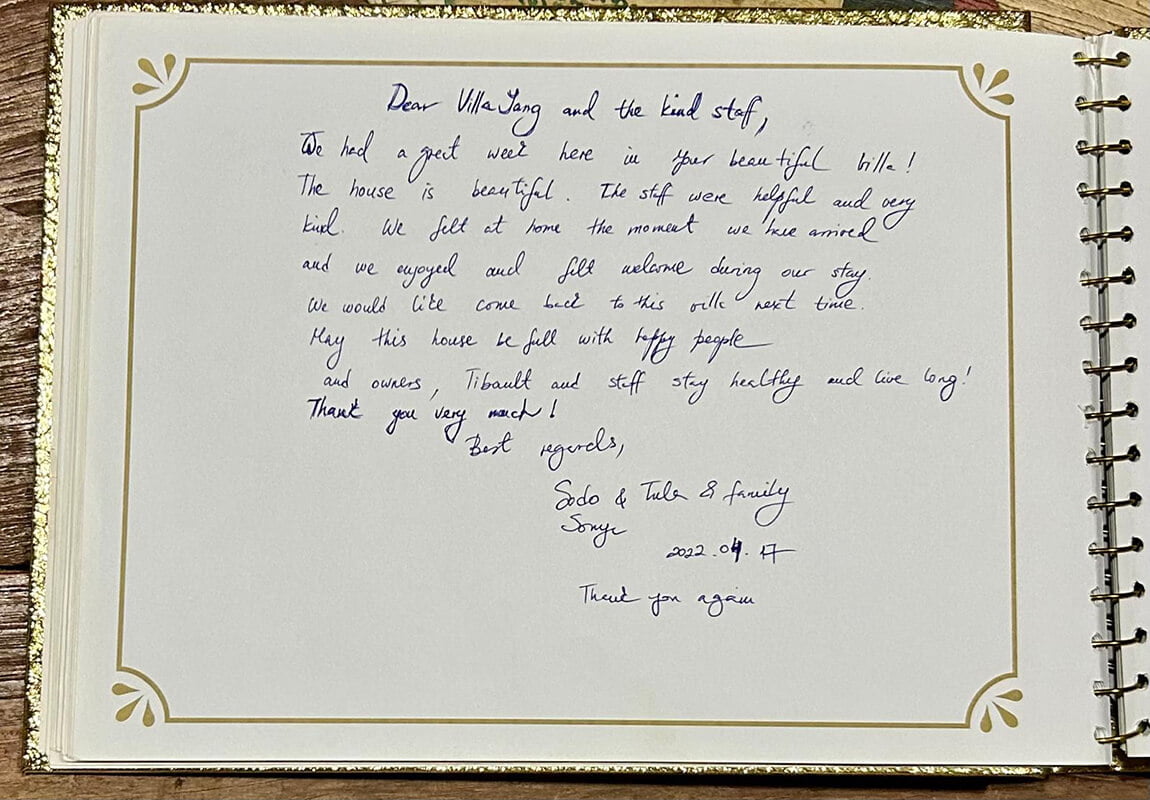 Dear Villa Yang and the kind staff,
We had a great week here in your beautiful villa!
The house is beautiful. The staff were helpful and very
kind. We felt at home the moment we have arrived
and we enjoyed and felt welcome during our stay.
We would like come back to this villa next time.
May this house be full with happy people
and owners, Tibault and staff stay healthy and live long!
Thank you very much!
Best regards,
Sodo & Tula & family
2022.04.17
Thank you again